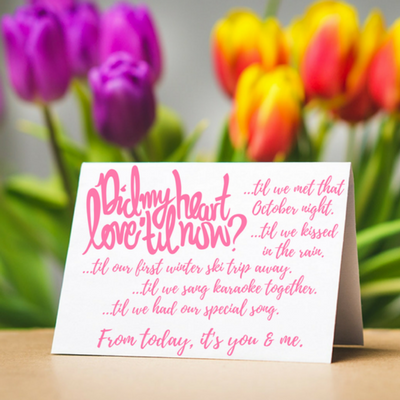 Did my heart
love 'til now?
...til we met that
October night.
...til we kissed
in the rain.
...til our first winter ski trip away.
...til we sang karaoke together.
...til we had our special song.
From today, it's you & me.